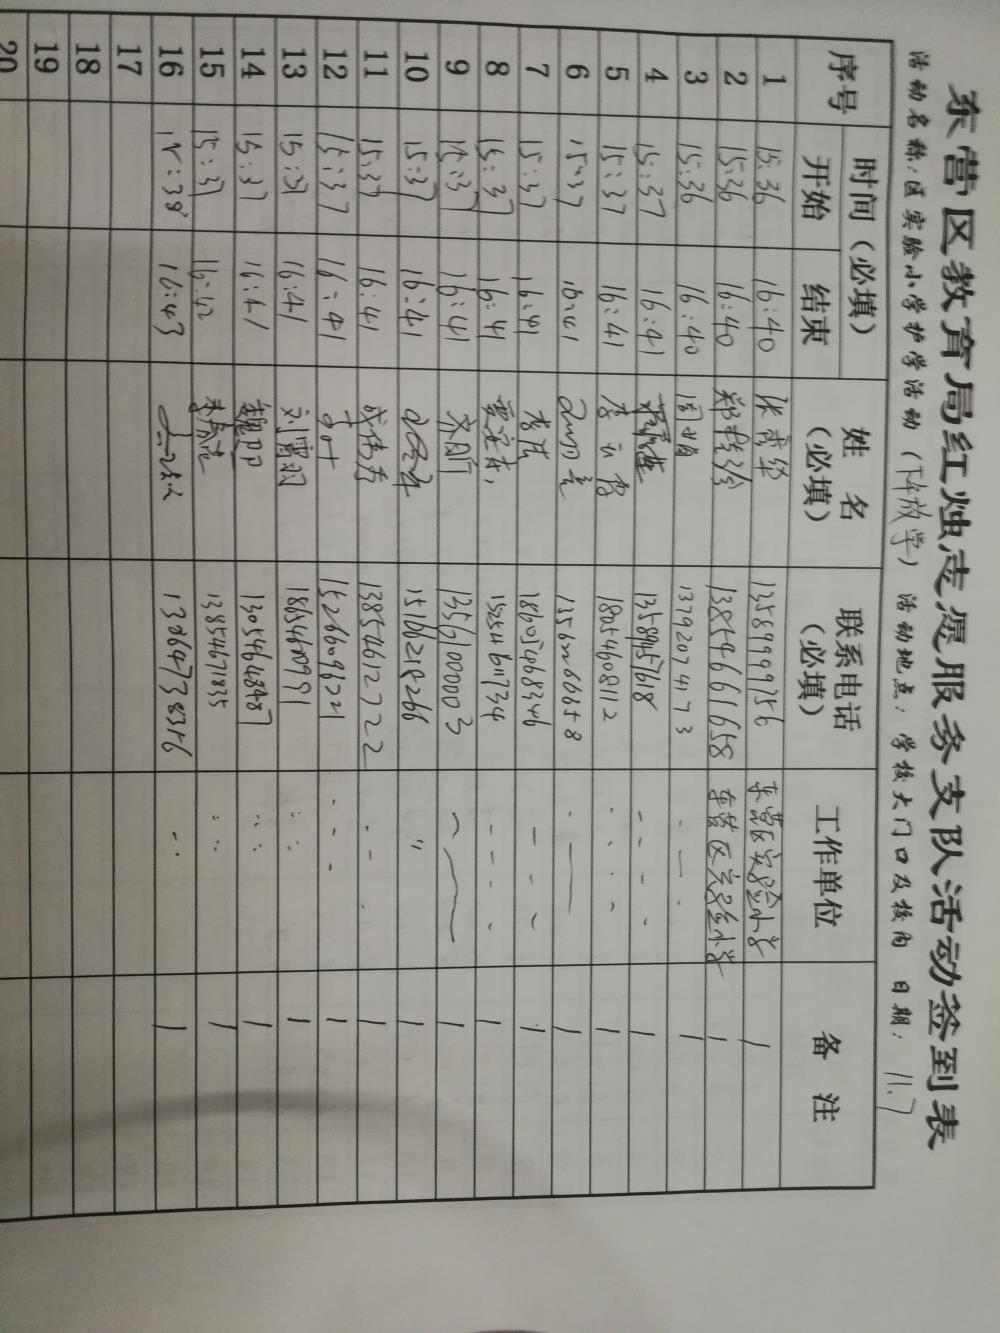 东营区教育局红烛志愿服务支队活动签到表
活动名称:区实验小学护学活动(下午放学) 活动地点:学校大门口及校内 日期: 11.7
序号 时间(必填) 姓名(必填) 联系电话(必填) 工作单位 备注
开始 结束
1 15:36 16:40 13589999756 东营区实验小学 /
2 15:36 16:40 13854661658 东营区实验小学 /
3 15:36 16:40 13792074173 /
4 15:37 16:41 13589457618 /
5 15:37 16:41 18054608112 /
6 15:37 16:41 /
7 15:37 16:41 李浩 18605468346 /
8 15:37 16:41 /
9 15:37 16:41 13561000003 /
10 15:37 16:41 〃 /
11 15:37 16:41 成伟秀 13854612722 /
12 15:37 16:41 15266096221 /
13 15:37 16:41 刘雪羽 /
14 15:37 16:41 13054648487 /
15 15:37 16:42 13854671835 /
16 15:38 16:43 /
17
18
19
20